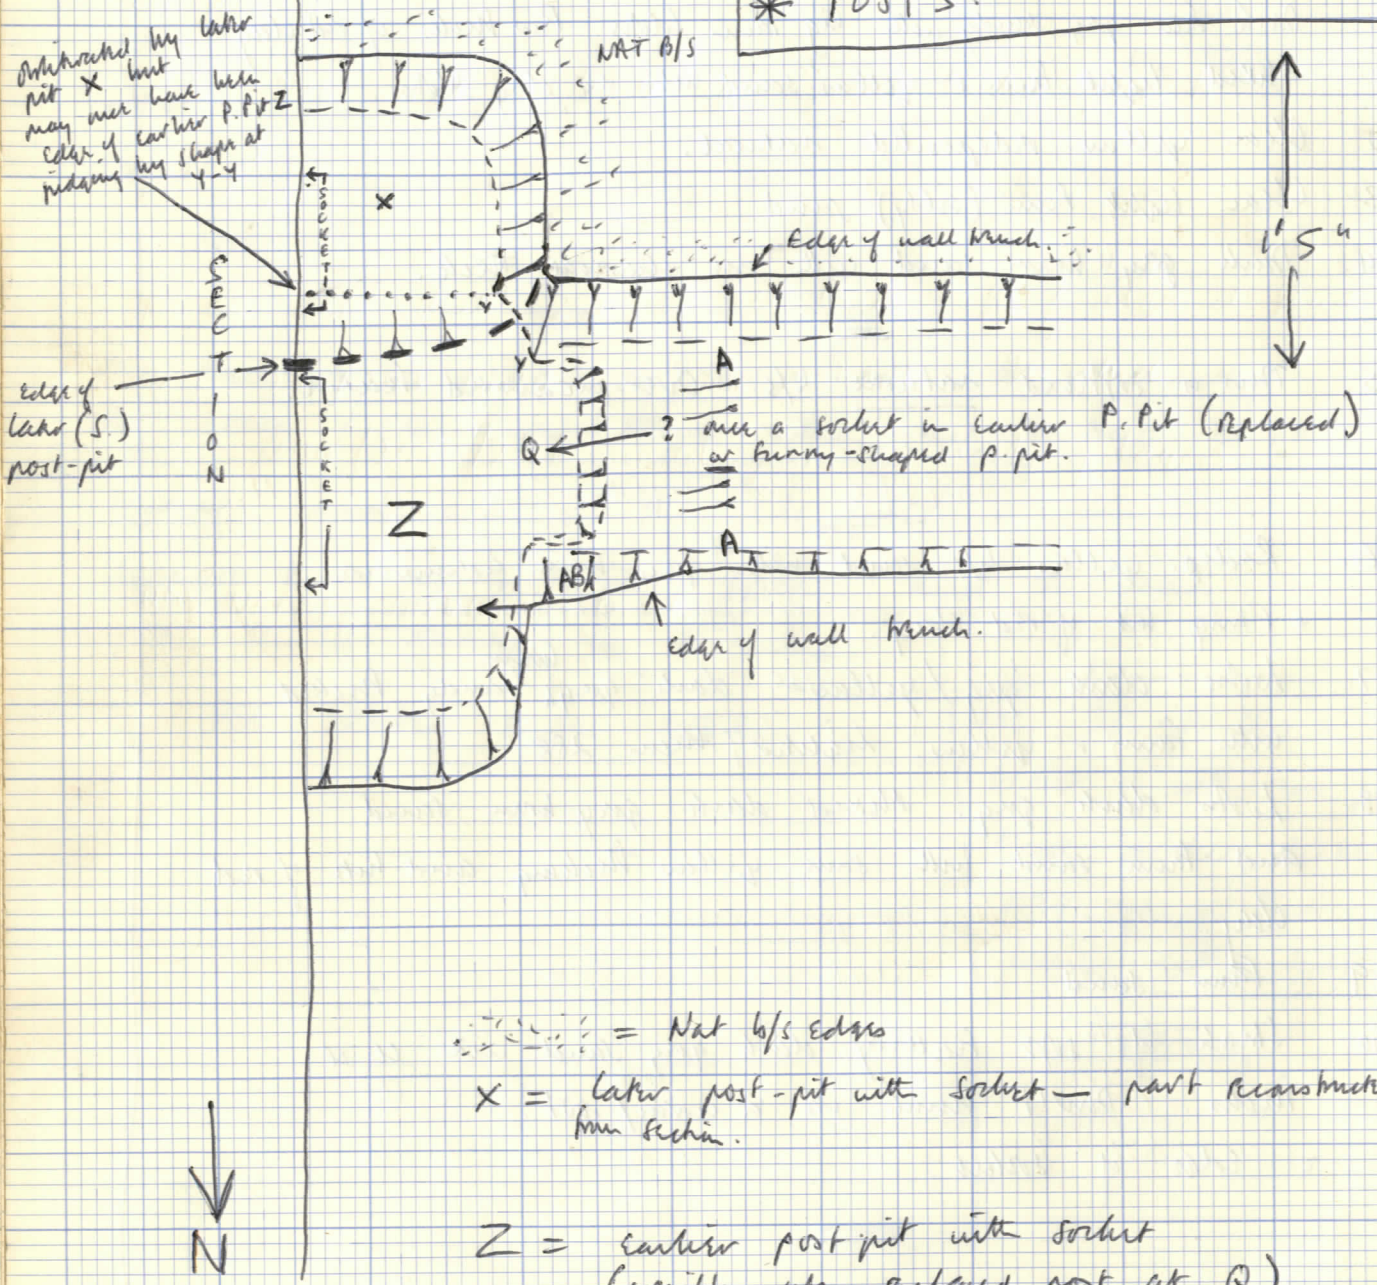 * POSTS.
obliterated by later
pit X but
may once have been
edge of earlier P. Pit Z
judging by shape at
Y-Y
NAT B/S
1' 5"
SOCKET
X
Edge of wall trench.
SECTION
Y
Y
A
Edge of
later (S.)
post-pit
SOCKET
Q
? once a socket in earlier P. Pit (replaced)
or funny-shaped p. pit.
Z
A
AB
Edge of wall trench.
= Nat b/s edges
X = later post-pit with socket — part reconstructe
from section.
N
Z = earlier post pit with socket
replaced post at Q)